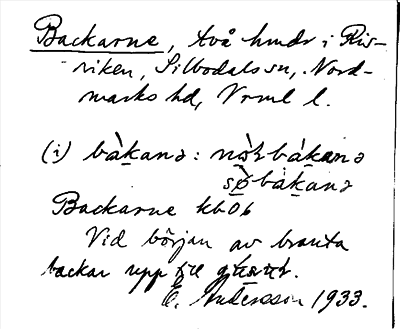 Backarne, två hmdr i Ris-
riken, Silbodals sn, Nord-
marks hd, Vrml l.
(i) bàkanə: nòṛbákanə
sø̀bákanə
Backarne kb06
Vid början av branta
backar upp till
E. Andersson 1933.